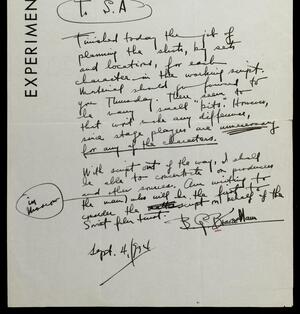 EXPERIMEN
T. S.A
Finished today the job of
planning the shots, by sets
and locations, for each
character in the working script.
Material should go forward to
you Thursday. There seem to
be many small "bits". However,
that won't make any difference,
since stage players are unnecessary
for any of the characters.
With script out of the way, I shall
be able to concentrate on producers
and other sources. Am writing to
the man who will in the first place
in Moscow
consider the script on behalf of the
Soviet film trust.
Sept. 4, 1934